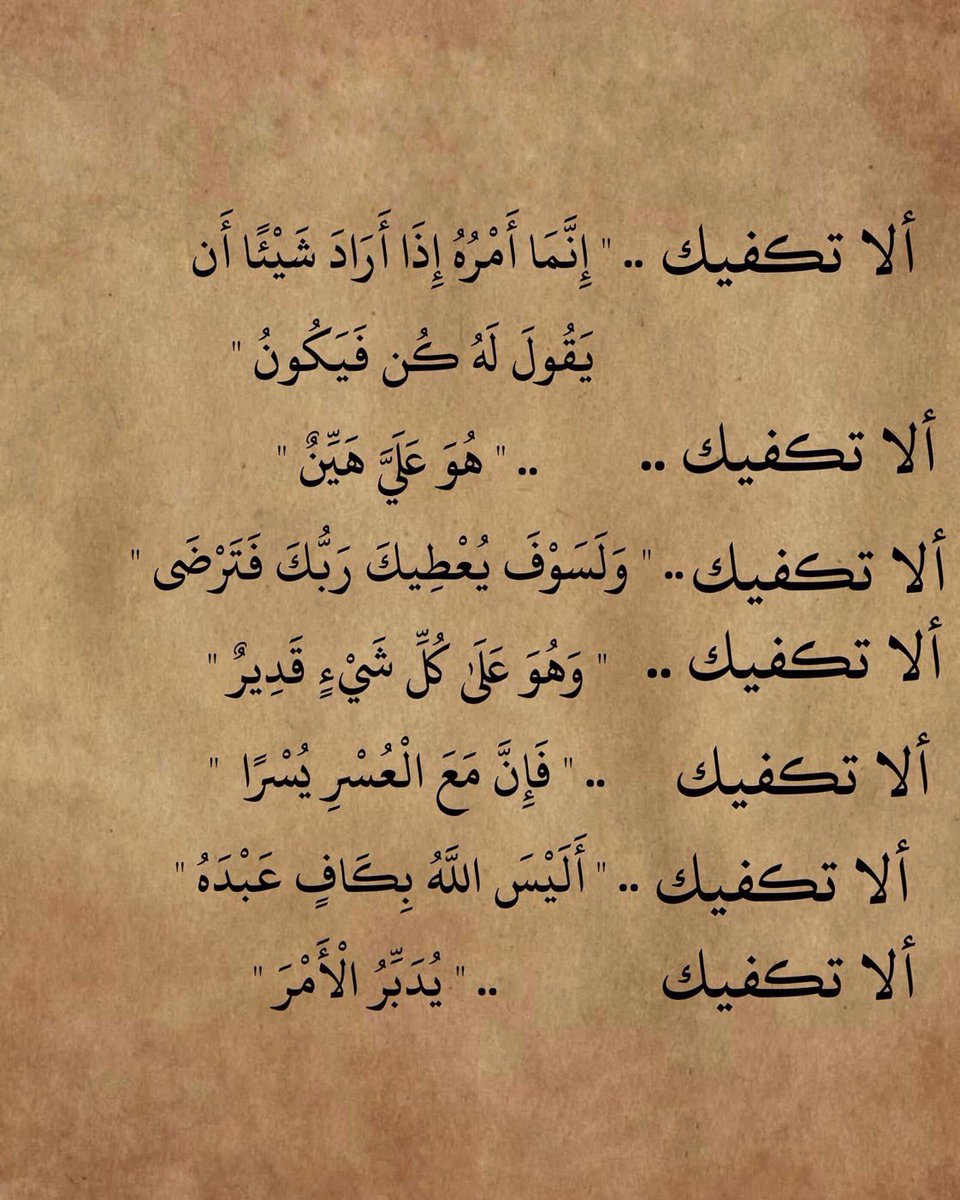 ألا تكفيك .. " إِنَّمَا أَمْرُهُ إِذَا أَرَادَ شَيْئًا أَن
يَقُولَ لَهُ كُن فَيَكُونُ "
ألا تكفيك .. .. " هُوَ عَلَيَّ هَيِّنٌ "
ألا تكفيك .. " وَلَسَوْفَ يُعْطِيكَ رَبُّكَ فَتَرْضَى "
ألا تكفيك .. " وَهُوَ عَلَىٰ كُلِّ شَيْءٍ قَدِيرٌ "
ألا تكفيك .. " فَإِنَّ مَعَ الْعُسْرِ يُسْرًا "
ألا تكفيك .. " أَلَيْسَ اللَّهُ بِكَافٍ عَبْدَهُ "
ألا تكفيك .. " يُدَبِّرُ الْأَمْرَ "